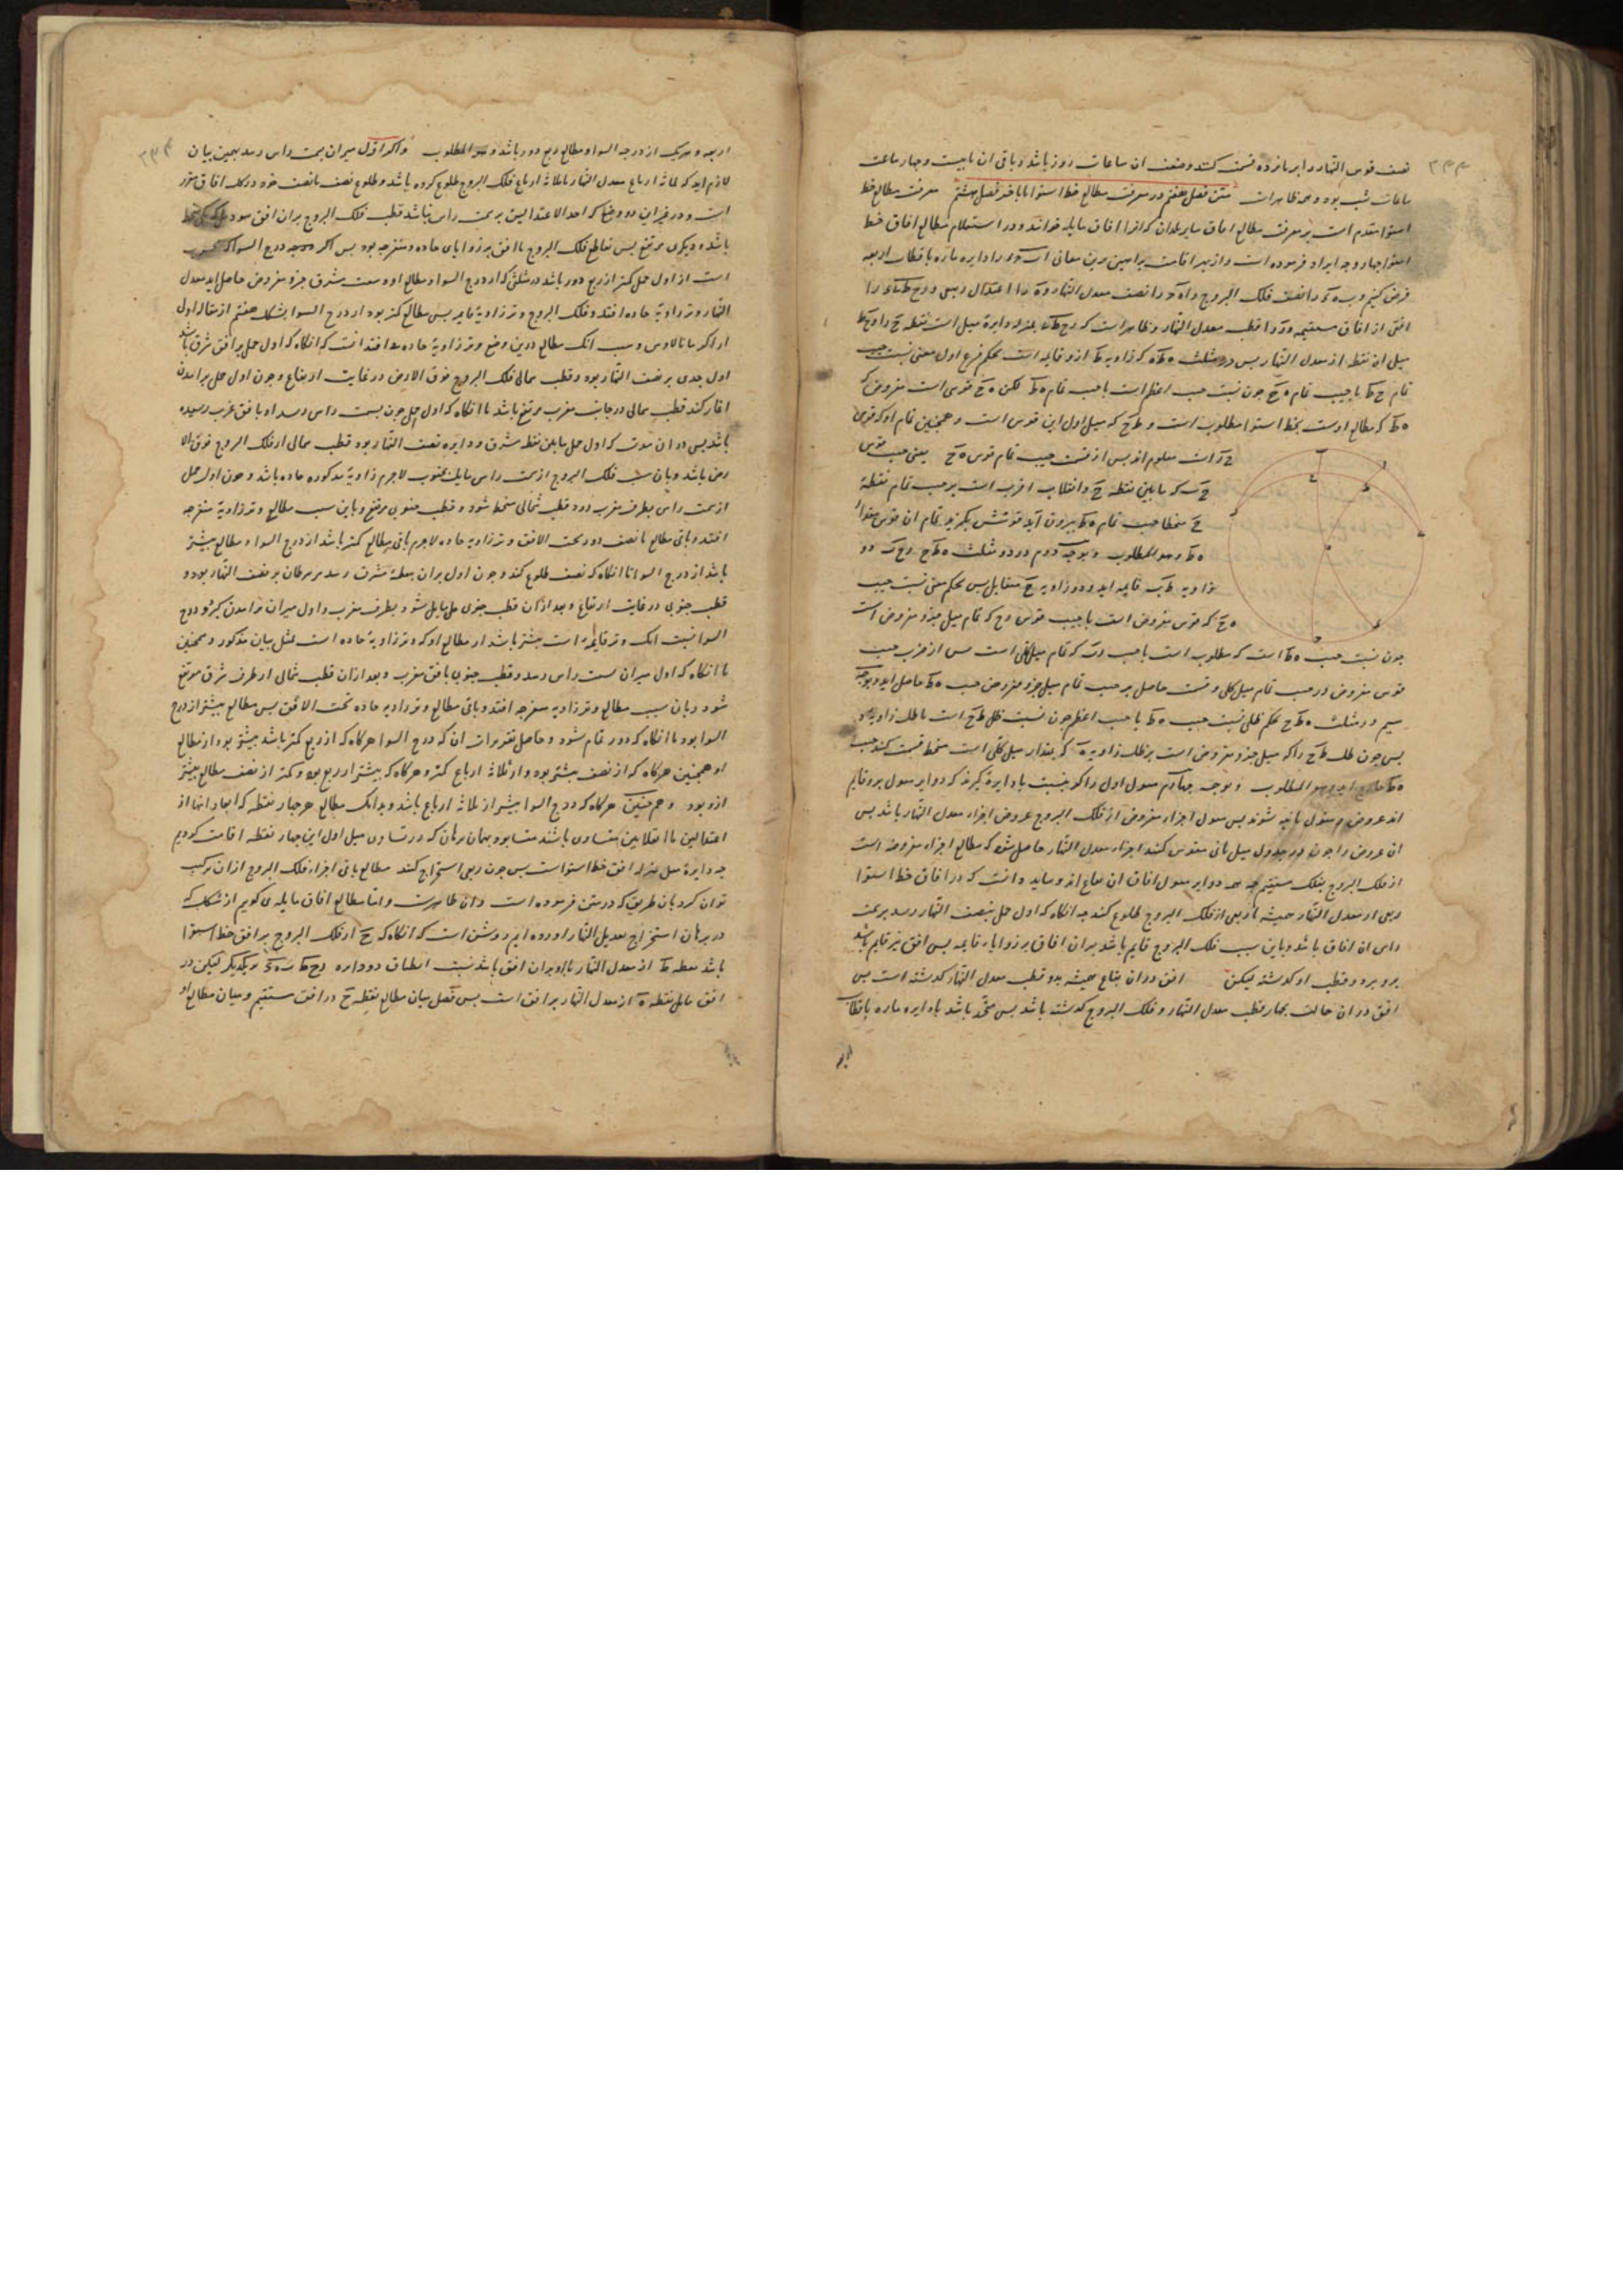 نصف قوس النهار را بر پانزده قسمت کنند و ضعف ان ساعات روز باشد و باقی ان تا بیست و چهار ساعت
ساعات شب بود و همه ظاهرات متن فصل هفتم در معرفت مطالع خط استوا با باخر فصل هشتم معرفت مطالع خط
استوا مقدم است بر معرفت مطالع افاق سایر بلدان که انرا افاق مایله خوانند و در استعلام مطالع افاق خط
استوا چهار وجه ایراد فرموده است و از بهر اقامت براهین برین معانی دایره ماره باقطاب اربعه
فرض کنیم و را نصف فلک البروج و را نصف معدل النهار و را اعتدال ربیعی و را
افقی از افاق مستقیمه و را قطب معدل النهار و ظاهر است که بمنزله دایره میل است نقطه
میل ان نقطه از معدل النهار پس در مثلث که زاویه ط ازو قایمه است بحکم فرع اول مغنی نسبت جیب
تمام ح ط با جیب تمام ه ح چون نسبت جیب اعظم است با جیب تمام ه ط لکن ه ح قوسی است مفروض که
ه ط که مطالع اوست بخط استوا مطلوب است و ط ح که میل اول این قوس است و همچنین تمام او که قوس
ح ر است معلوم اند پس از قسمت جیب تمام قوس ه ح یعنی جیب قوس
که مابین نقطه ح و انقلاب اقرب است بر جیب تمام نقطه
ح منحطا جیب تمام ه ط بیرون آید قوسش بگیرند تمام ان قوس مقدار
ه ط و هو المطلوب و بوجه دوم در دو مثلث ه ط ح
زاویه ط ب قایمه اند و دو زاویه ح متقابل پس بحکم مغنی نسبت جیب
ه ح که قوس مفروض است با جیب قوس رح که تمام میل جزو مفروض است
چون نسبت جیب ه ط است که مطلوب است با جیب که تمام میل کلی است پس از ضرب جیب
قوس مفروض در جیب تمام میل کلی و قسمت حاصل بر جیب تمام میل جزو مفروض جیب ه ط حاصل اید و بوجه
سیم در مثلث ه ط ح بحکم ظلی نسبت جیب ه ط با جیب اعظم چون نسبت ظل ط ح است با ظل زاویه
پس چون ظل ط ح را که میل جزو مفروض است بر ظل زاویه ه که بمقدار میل کلی است منحط قسمت کنند جیب
ه ط و هو المطلوب و بوجه چهارم میول اول را که بنسبت با دایره گیرند که دوایر میول برو قایم
اند عروض و میول ثانیه شوند پس میول اجزاء مفروض از فلک البروج عروض اجزاء معدل النهار باشد پس
ان عروض را چون در جدول میل ثانی مقوس کنند اجزاء معدل النهار حاصل شود که مطالع اجزاء مفروضه است
از فلک البروج بفلک مستقیم چه همه دوایر میول افاق ان بقاع اند و باید دانست که در افاق خط استوا
ربعی از معدل النهار همیشه با ربعی از فلک البروج طلوع کند چه انگاه که اول حمل بنصف النهار رسد بر سمت
راس ان افاق باشد و باین سبب فلک البروج قایم باشد بران افاق بر زوایا قایمه پس افق نیز قایم باشد
برو بر دو قطب او گذشته لیکن افق دران بقاع همیشه بدو قطب معدل النهار گذشته است پس
افق دران حالت بچهار قطب معدل النهار و فلک البروج گذشته باشد پس متحد باشد با دایره ماره باقطاب
اربعه و هریک از درجه السواء و مطالع ربع دور باشد و هو المطلوب و اگر اول میزان بسمت راس رسد بهمین بیان
لازم اید که ثلاثه ارباع معدل النهار با ثلاثه ارباع فلک البروج طلوع کرده باشد و طلوع نصف با نصف خود در کل افاق مقرر
است و در غیر این دو وضع که احد الاعتدالین بر سمت راس نباشد قطب فلک البروج بران افق نبود بلکه یکی منحط
باشد و دیگری مرتفع پس تقاطع فلک البروج با افق بر زوایای حاده و منفرجه بود پس اگر درج السوا که
است از اول حمل کمتر از ربع دور باشد در مثلثی که از درج السوا و مطالع او و سعت مشرق جزو مفروض حاصل اید معدل
النهار وتر زاویه حاده افتد و فلک البروج وتر زاویه قایمه پس مطالع کمتر بود از درج السوا بشکل هفتم از مقاله اول
از اکر مانالاوس و سبب انک مطالع درین وضع وتر زاویه حاده می افتد انست که انگاه که اول حمل بر افق شرقی باشد
اول جدی بر نصف النهار بود و قطب شمالی فلک البروج فوق الارض در غایت ارتفاع و چون اول حمل برامدن
اغاز کند قطب شمالی در جانب مغرب مرتفع باشد تا انگاه که اول حمل چون بسمت راس رسد او بافق غرب رسیده
باشد پس در ان مدت که اول حمل مابین نقطه مشرق و دایره نصف النهار بود قطب شمالی از فلک البروج فوق الا
رض باشد و بان سبب فلک البروج از سمت راس مایل بجنوب لاجرم زاویه مذکوره حاده باشد و چون اول حمل
از سمت راس بطرف مغرب رود قطب شمالی منحط شود و قطب جنوبی مرتفع و باین سبب مطالع وتر زاویه منفرجه
افتد و باقی مطالع تا نصف دور تحت الافق وتر زاویه حاده لاجرم باقی مطالع کمتر باشد از درج السوا و مطالع بیشتر
باشد از درج السوا تا انگاه که نصف طلوع کند و چون اول میزان بنقطه مشرق رسد سر سرطان بر نصف النهار بود و
قطب جنوبی در غایت ارتفاع و بعد ازان قطب جنوبی مایل شود بطرف مغرب و اول میزان برامدن گیرد و درج
السوا نسبت انک وتر قایمه است بیشتر باشد از مطالع او که وتر زاویه حاده است بمثل بیان مذکور و همچنین
تا انگاه که اول میزان بسمت راس رسد و قطب جنوبی بافق مغرب و بعد ازان قطب شمالی از طرف شرق مرتفع
شود و بان سبب مطالع وتر زاویه منفرجه افتد و باقی مطالع وتر زاویه حاده تحت الافق پس مطالع بیشتر از درج
السوا بود تا انگاه که دور تمام شود و حاصل تقریر ان که درج السوا هرگاه که از ربع کمتر باشد بیشتر بود از مطالع
او همچنین هرگاه که از نصف بیشتر بود و از ثلاثه ارباع کمتر و هرگاه که بیشتر از ربع بود و کمتر از نصف مطالع بیشتر
ازو بود و هم چنین هرگاه که درج السوا بیشتر از ثلاثه ارباع باشد و بدانک مطالع هر چهار نقطه که ابعاد انها از
اعتدالین یا انقلابین متساوی باشند متساوی بود بهمان برهان که در تساوی میل اول این چهار نقطه اقامت کردیم
چه دایره میل بمنزله افق خط استواست پس چون ربعی استخراج کنند مطالع باقی اجزاء فلک البروج ازان ترکیب
توان کرد بان طریق که در متن فرموده است و ان ظاهرست و اما مطالع افاق مایله می گویم از شکلی که
در برهان استخراج تعدیل النهار اورده ایم روشن است که انگاه که ح از فلک البروج بر افق خط استوا
باشد نقطه ط از معدل النهار با او بران افق باشد بسبب انطباق دو دایره بر یکدیگر لیکن در
افق مایل نقطه ه از معدل النهار بر افق است پس فصل میان مطالع نقطه ح در افق مستقیم و میان مطالع او